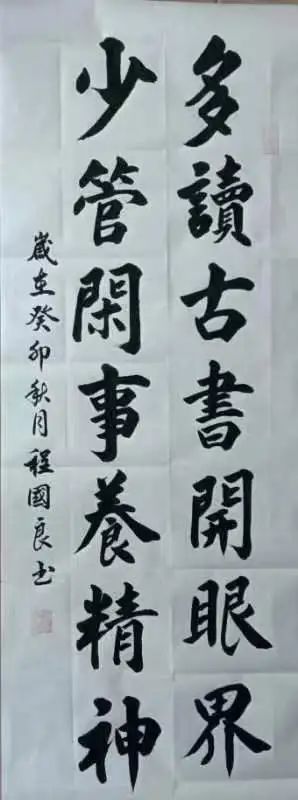 多讀古書開眼界
少管閑事養精神
歲在癸卯秋月程國良书